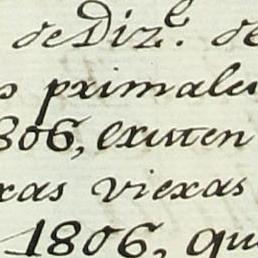 de Diz.e de
s primales
806, existen
xas viexas
1806, que